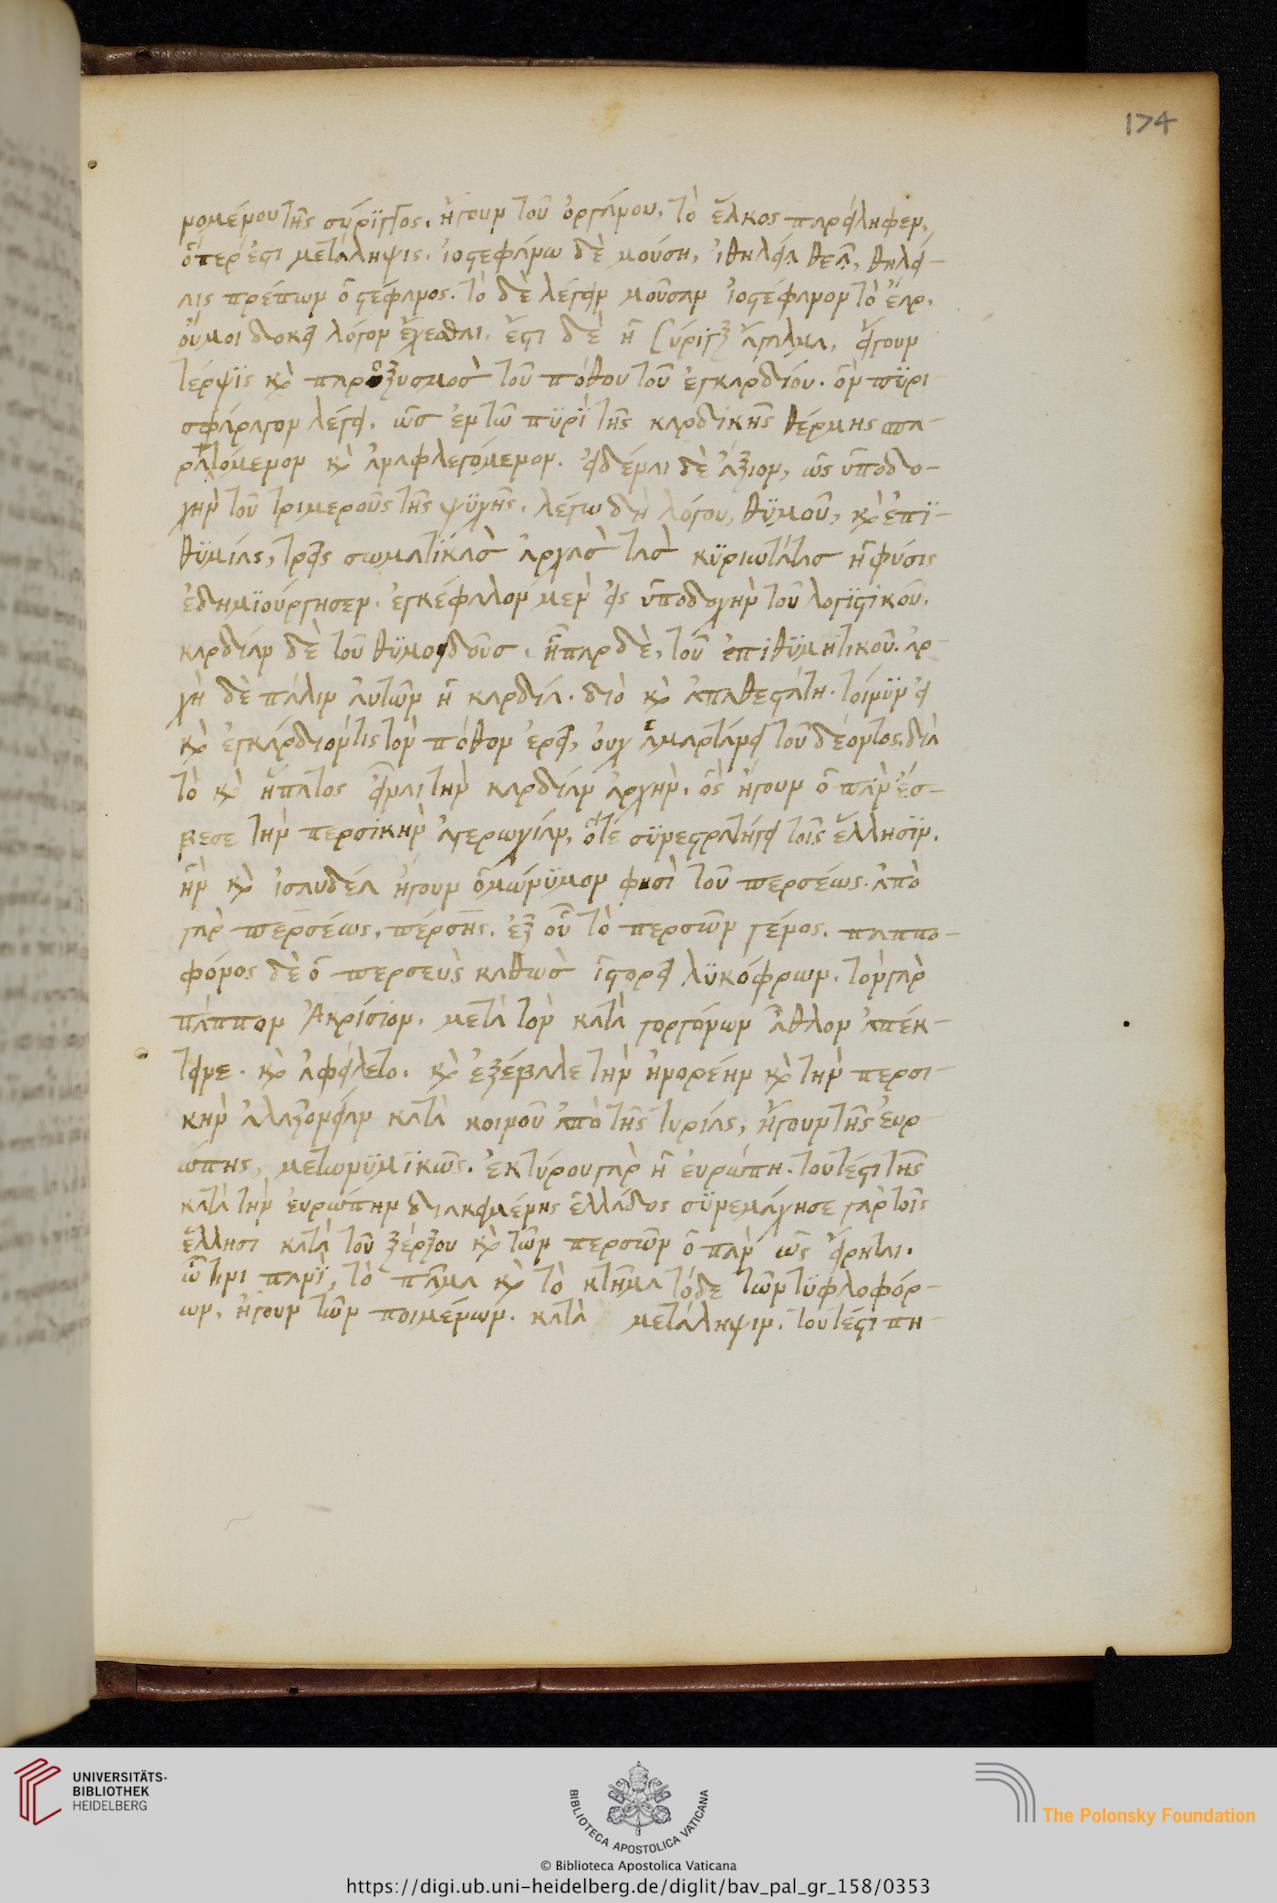 174
νομένου τῆς σύριγγος, ἤγουν τοῦ ὀργάνου, τὸ ἕλκος παρείληφεν,
ὅπερ ἐστὶ μετάληψις. ἰοστεφάνω δὲ μούση,
πρέπων ὁ στέφανος. τὸ δὲ λέγειν μοῦσαν ἰοστέφανον τὸ ἔαρ,
οὔμοι δοκεῖ λόγον ἔχεσθαι. ἔστι δὲ ἡ Σύριγξ ἄγαλμα, εἴγουν
τέρψϊς καὶ παροξυσμοσ τοῦ πόθου τοῦ ἐγκαρδίου. ὃν πϋρι
σφάραγον λέγει. ὡσ ἐν τῶ πϋρὶ τῆς καρδϊκῆς θέρμης σπα-
ραττόμενον καὶ ἀναφλεγόμενον. εἰδέναι δὲ ἄξιον, ὡς ὑποδο-
χὴν τοῦ τριμεροῦς τῆς ψϋχῆς, λέγω δὴ λόγου, θϋμοῦ, καὶ ἐπϊ-
θϋμίας, τρεῖς σωματϊκὰσ ἀρχὰσ τὰσ κϋριωτάτασ ἡ φύσις
ἐδημϊούργησεν. ἐγκέφαλον μὲν εἰς ὑποδοχὴν τοῦ λογϊστικοῦ.
καρδίαν δὲ τοῦ θϋμοειδοῦσ. ἧπαρ δὲ, τοῦ ἐπιθϋμητικοῦ. ἀρ-
χὴ δὲ πάλιν αὐτῶν ἡ καρδία. διὸ καὶ ἀπαθεστάτη. τοίνϋν εἰ
καὶ ἐγκάρδιόν τις τὸν πόθον ἐρεῖ, οὐχ ἁμαρτάνει τοῦ δέοντος, διὰ
τὸ καὶ ἥπατος εἶναι τὴν καρδίαν ἀρχὴν. ὃς ἤγουν ὁ πὰν ἔσ-
βεσε τὴν περσϊκὴν ἀγερωχίαν, ὅτε σϋνεστρατήγει τοῖς ἕλλησϊν.
ἣν καὶ ἰσαυδέα ἤγουν ὁμώνϋμον φησὶ τοῦ περσέως. ἀπὸ
γὰρ περσέως, πέρσης. ἐξ οὗ τὸ περσῶν γένος. παππο-
φόνος δὲ ὁ περσεὺς καθὼσ ἱστορεῖ λϋκόφρων. τὸν γὰρ
πάππον Ἀκρίσϊον, μετὰ τὸν κατὰ γοργόνων ἆθλον ἀπέκ-
τεινε. καὶ ἀφείλετο. καὶ ἐξέβαλε τὴν ἠνορέην καὶ τὴν περσι-
κὴν ἀλαζονείαν κατὰ κοινοῦ ἀπὸ τῆς τυρίας, ἤγουν τῆς ἐυρ-
ώπης, μετωνϋμϊκῶς. ἐκ τύρου γὰρ ἡ ἐυρώπη. τουτέστι τῆς
κατὰ τὴν ἐυρώπην διακειμένης ἑλλάδος σϋνεμάχησε γὰρ τοῖς
ἕλλησι κατὰ τοῦ ξέρξου καὶ τῶν περσῶν ὁ πὰν ὡς εἴρηται.
ὧτινι πανϊ, τὸ πᾶμα καὶ τὸ κτῆμα τόδε τῶν τϋφλοφόρ-
ων, ἤγουν τῶν ποιμένων. κατὰ μετάληψιν. τουτέστι πη-
UNIVERSITÄTS-
BIBLIOTHEK
HEIDELBERG
BIBLIOTECA APOSTOLICA VATICANA
The Polonsky Foundation
© Biblioteca Apostolica Vaticana
https://digi.ub.uni-heidelberg.de/diglit/bav_pal_gr_158/0353